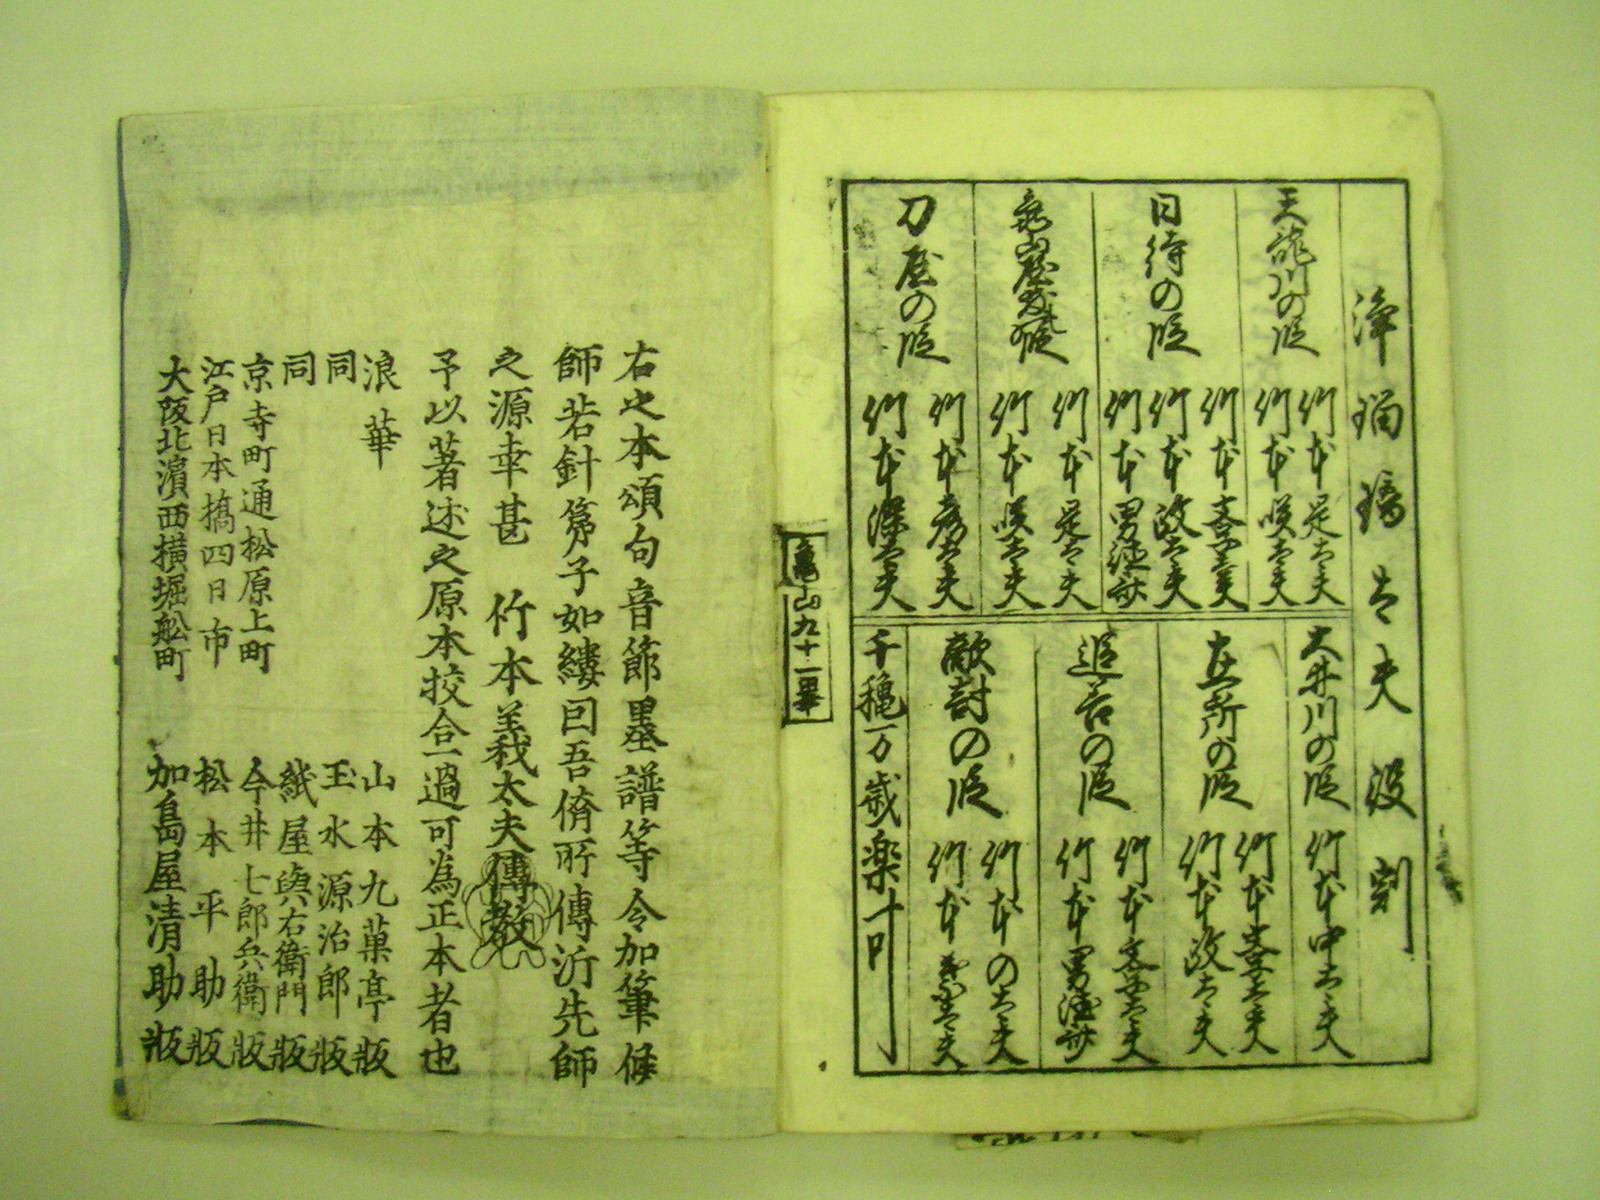 浄瑠璃太夫役割
天龍川の段
竹本是太夫
竹本咲太夫
日待の段
竹本喜太夫
竹本政太夫
竹本男徳斎
亀山屋敷の段
竹本是太夫
竹本咲太夫
刀屋の段
竹本彦太夫
竹本染太夫
大井川の段
竹本中太夫
在所の段
竹本喜太夫
竹本政太夫
追善の段
竹本喜太夫
竹本男徳斎
敵討の段
竹本の太夫
竹本太夫
千穐万歳楽大叶
亀山九十一畢
右之本頌句音節墨譜等令加筆候
師若針弟子如縷因吾儕所傳泝先師
之源幸甚 竹本義太夫傳教
予以著述之原本挍合一過可為正本者也
浪華 山本九菓亭版
同 玉水源治郎版
同 紙屋與右衛門版
京寺町通松原上町 今井七郎兵衛版
江戸日本橋四日市 松本平助版
大阪北濱西横堀舩町 加島屋清助版